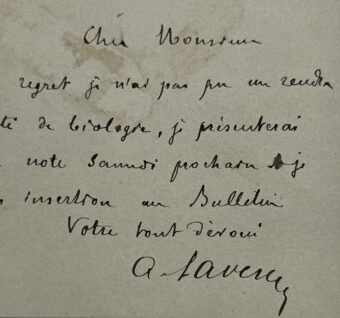 Cher Monsieur
regret je n'ai pas pu me rendre
té de biologie, je présenterai
note Samedi prochain & je
insertion au Bulletin
Votre tout dévoué
A. Laveran